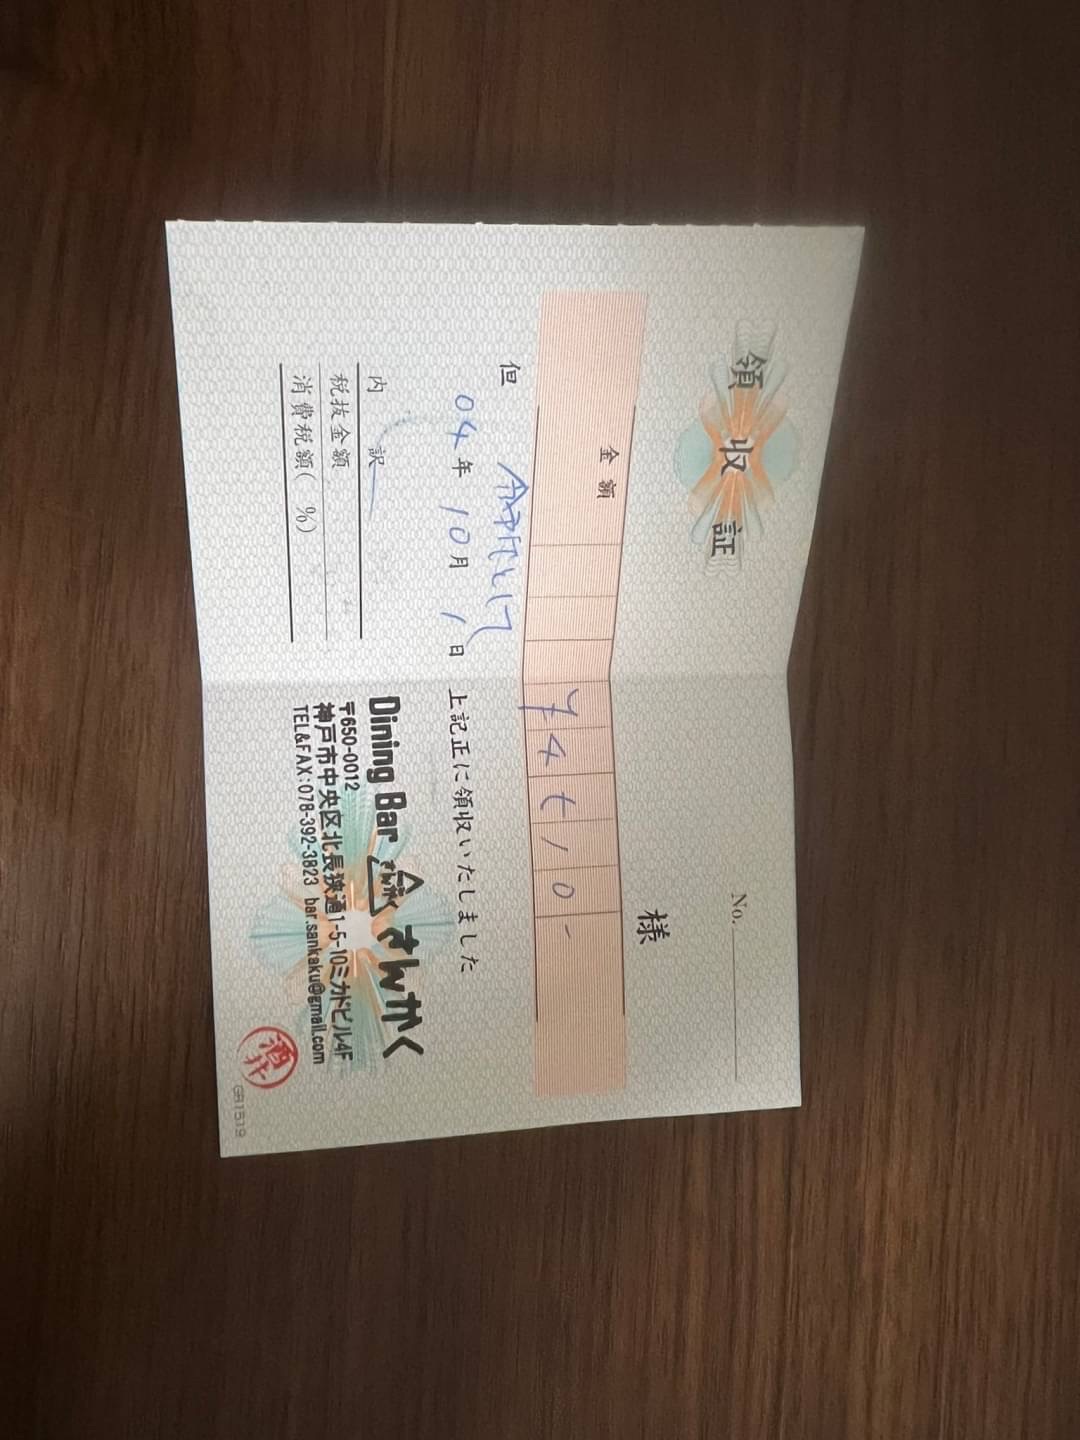 領収証
No.
様
金額
但 として
04年10月1日 上記正に領収いたしました
内訳
税抜金額
消費税額( %)
Dining Bar さんかく さんかく
〒650-0012
神戸市中央区北長狭通1-5-10ミカドビル4F
TEL&FAX:078-392-3823 bar.sankaku@gmail.com
酒井
GR1519